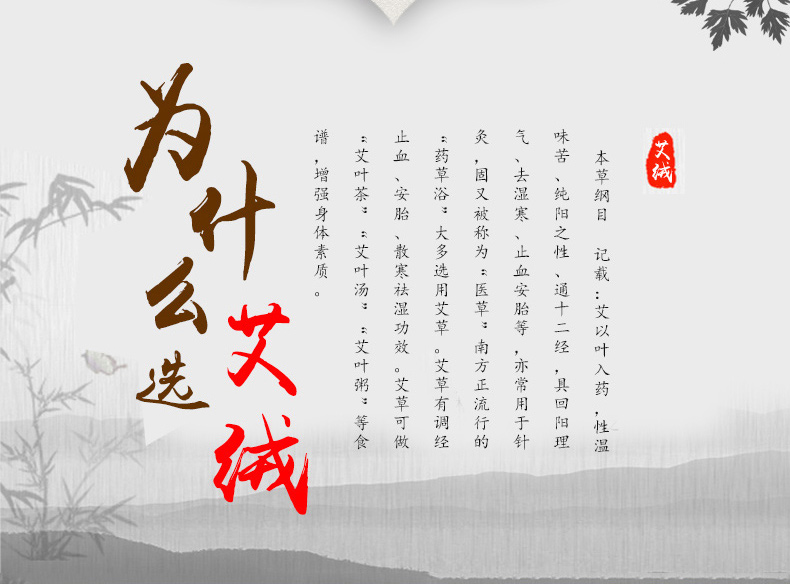 为什么选
艾绒
艾绒
本草纲目 记载：艾以叶入药，性温
味苦、纯阳之性、通十二经，具回阳理
气、去湿寒、止血安胎等，亦常用于针
灸，固又被称为“医草”南方正流行的
“药草浴”大多选用艾草。艾草有调经
止血、安胎、散寒祛湿功效。艾草可做
“艾叶茶”“艾叶汤”“艾叶粥”等食
谱，增强身体素质。